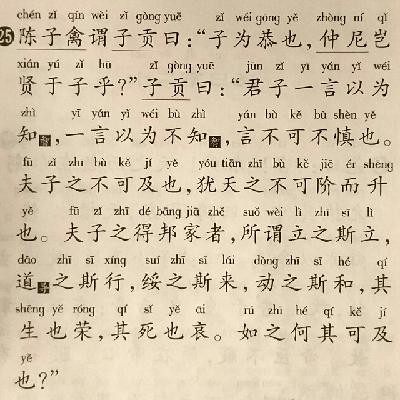 chén zǐ qín wèi zǐ gòng yuē zǐ wéi gōng yě zhòng ní qǐ
25 陈子禽谓子贡曰：“子为恭也，仲尼岂
xián yú zǐ hū zǐ gòng yuē jūn zǐ yì yán yǐ wéi
贤于子乎？”子贡曰：“君子一言以为
zhì yì yán yǐ wéi bù zhì yán bù kě bù shèn yě
知智，一言以为不知智，言不可不慎也。
fū zǐ zhī bù kě jí yě yóu tiān zhī bù kě jiē ér shēng
夫子之不可及也，犹天之不可阶而升
yě fū zǐ zhī dé bāng jiā zhě suǒ wèi lì zhī sī lì
也。夫子之得邦家者，所谓立之斯立，
dǎo zhī sī xíng suí zhī sī lái dòng zhī sī hé qí
道导之斯行，绥之斯来，动之斯和，其
shēng yě róng qí sǐ yě āi rú zhī hé qí kě jí
生也荣，其死也哀。如之何其可及
yě
也？”